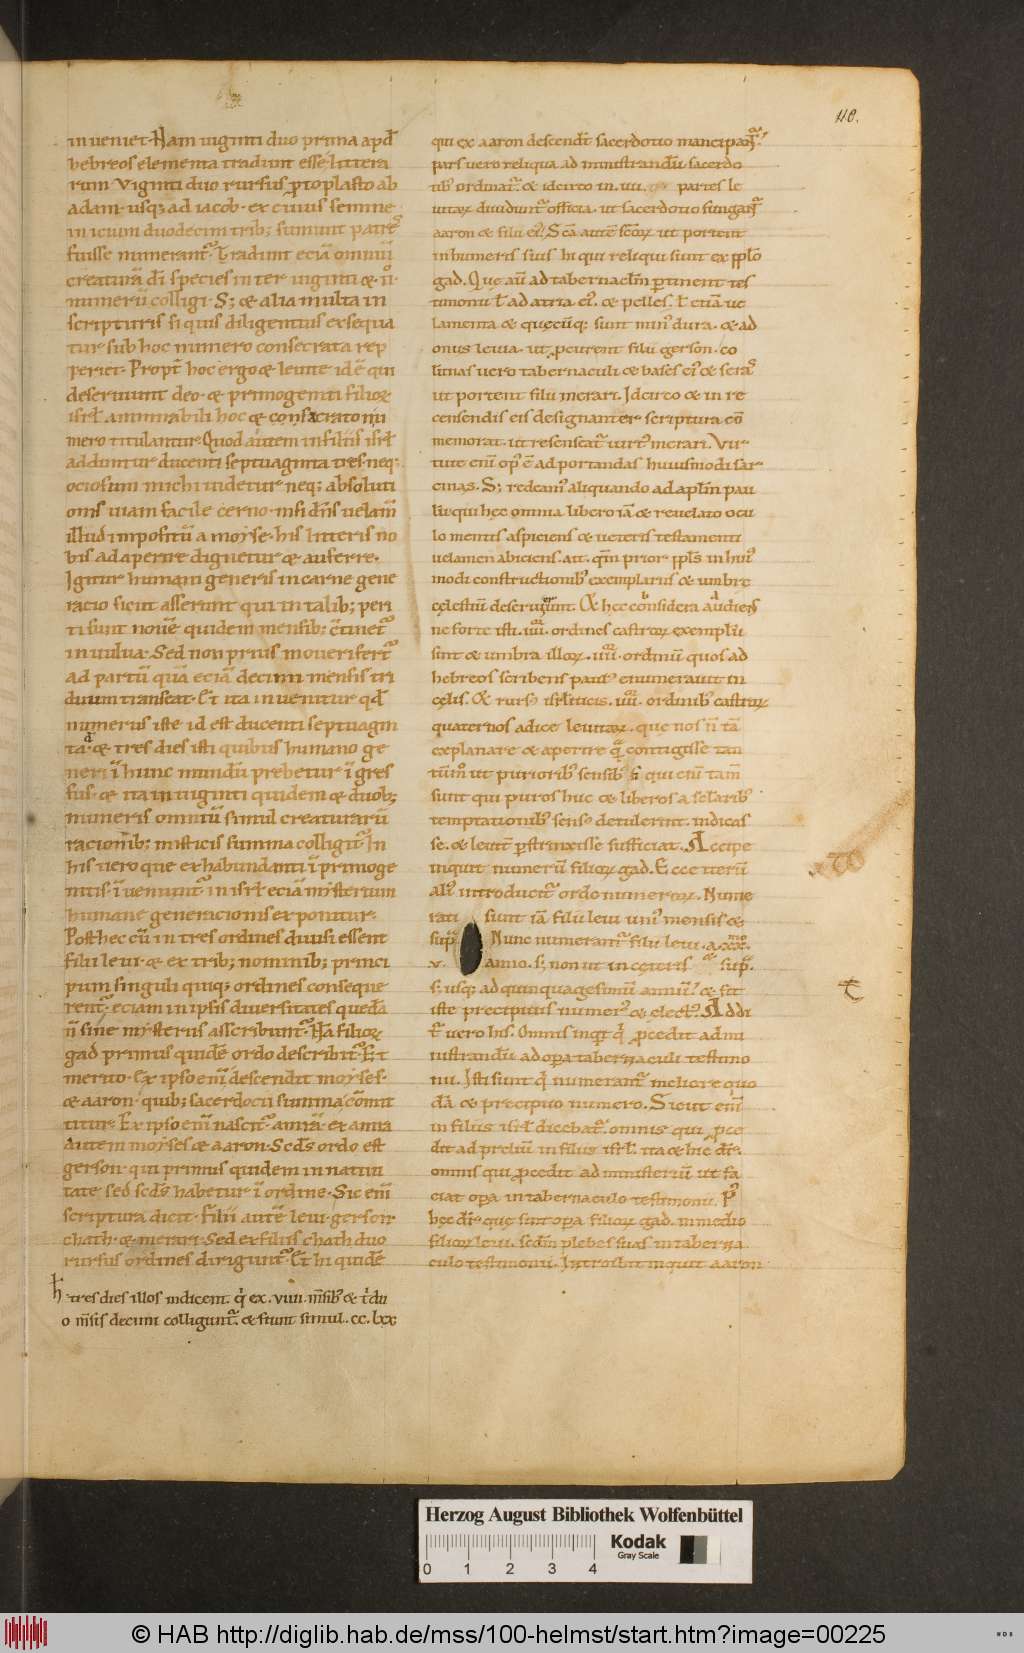 110.
inueniet. Nam uiginti duo prima apđ
hebreos elementa tradunt esse littera
rum. Viginti duo rursus ꝓtoplasto ab
adam. usq; ad iacob. ex cuius semine
inicium duodecim trib; sumunt patrēs
fuisse numerant᷑. Tradunt eciā omniū
creaturā dī species inter uiginti & .ii.
numerū colligi. S; & alia multa in
scripturis si quis diligentius exsequa
tur sub hoc numero consecrata rep
periet. Propt̄ hoc ergo & leuite idē qui
deseruiunt deo. & primogeniti filioꝝ
isrł. ammirabili hoc & consecrato nu
mero titulantur. Quod autem in filiis isrł
adduntur ducenti septuaginta tres. neq;
ociosum michi uidetur neq; absoluti
onis uiam facile cerno. nisi dn̄s uelam̄
illud impositū a moyse. his litteris no
bis adaperire dignetur & auferre.
Igitur humani generis in carne gene
racio sicut asserunt qui in talib; peri
ti sunt nouē quidem mensib; c̄tinet᷑
in uulua. Sed non prius moueri fert᷑
ad partū quā eciā decimi mensis tri
duum transeat. Et ita inuenitur qđ
numerus iste id est ducenti septuagin
ta. & tres dies isti quibus humano ge
neri ī hunc mundū prebetur īgres
sus. & ita in uiginti quidem & duob;
numeris omniū simul creaturarū
racionib; misticis summa colligit᷑. In
his uero que exhabundanti ī primoge
nitis. īueniunt᷑ in isrł eciā mysterium
humane generacionis exponitur.
Post hec cū in tres ordines diuisi essent
filii leui. & ex trib; nominib; princi
pum singuli quiq; ordines conseque
rent᷑. eciam in ipsis diuersitates quedā
n̄ sine mysteriis asscribunt᷑. Nā filioꝝ
gad primus quidē ordo describit᷑. Et
merito. Ex ipso enī descendit moyses.
& aaron. quib; sacerdocii summa c̄mit
titur. Ex ipso enī nascit᷑ amrā. ex amra
autem moyses & aaron. Scđs ordo est
gerson. qui primus quidem in natiui
tate sed scđs habetur ī ordine. Sic enī
scriptura dicit. Filii autē leui. gerson
chath. & merari. Sed ex filiis chath duo
rursus ordines dirigunt᷑. Et hi quidē
ħ. tres dies illos indicent. q̇ ex .viiii. m̄sib; & t̄du
o m̄sis decimi colligunt᷑. & fiunt simul .cc.lxx
qui ex aaron descendt̄ sacerdotio mancipant᷑.
pars uero reliqua administrandū sacerdo
tib; ordinat᷑. & idcirco in .iiii. partes le
uitaꝝ diuidunt᷑ officia. ut sacerdotio fungant᷑
aaron & filii ei᷒. Scā autē sc̄oꝝ ut portent
in humeris suis hi qui reliqui sunt ex pp̄lo
gad. Quę aut̄ ad tabernaclm̄ ꝑtinent tes
timonii ł ad atria ei᷒. & pelles. ł etiā ue
lamenta & quęcūq; sunt min᷒ dura. & ad
onus leuia. ut ꝓcurent filii gerson. co
lumnas uero tabernaculi & bases ei᷒ & seras
ut portent filii merari. Idcirco & in re
censendis eis designanter scriptura cō
memorat. ut resenseat᷑ uirt᷒ merari. Vir
tute enī op᷒ ē ad portandas huiusmodi sar
cinas. S; redeam᷒ aliquando ad apłm pau
lū. qui hęc omnia libero iā & reuelato ocu
lo mentis aspiciens & ueteris testamenti
uelamen abiciens. ait. qm̄ prior ppłs in hui᷒
modi constructionib; exemplariis & umbrę
cęlestiū deseruierunt. Et hec considera audiens
ne forte isti .iiii. ordines castroꝝ exemplū
sint & umbra illoꝝ .iiii. ordinū quos ad
hebreos scribens paul᷒ enumerauit in
cęlis. Et rurs᷒ isrłiticis .iiii. ordinib; castroꝝ
quaternos adice leuitaꝝ. que nos n̄ tā
explanare & aperire q̄ contigisse tan
tūm᷒ ut puriorib; sensib; s̄ qui enī tam̄
sunt qui puros huc & liberos a sclarib;
temptationib; sens᷒ detulerint. indicas
se. & leuit̄ ꝑstrinxisse sufficiat. Accipe
inquit numerū filioꝝ gad. Ecce iterū
ali᷒ introducit᷑ ordo numeroꝝ. Nume
rati sunt iā filii leui uni᷒ mensis &
supͣ. Nunc numerant᷑ filii leui .a.xx.mo
v. anno. s; non ut in cęteris supͣ.
s; usq; ad quinquagesimū annū. & fit
iste precipuus numer᷒ & elect᷒. Addi
t᷑ uero his. Omnis inqͥt q̇ ꝓcedit admi
nistrandū ad opera tabernaculi testimo
nii. Isti sunt q̇ numerant᷑ meliore quo
dā & precipuo numero. Sicut enī
in filiis isrł dicebat᷑. omnis qui ꝓce
dit ad preliū in filiis isrł. ita & hic dr̄.
omnis qui ꝓcedit ad ministeriū ut fa
ciat opera in tabernaculo testimonii. P᷒
hęc dr̄. quę sint opera filioꝝ gad. in medio
filioꝝ leui. scdm̄ plebes suas in taberna
culo testimonii. Introibit inquit aaron
Herzog August Bibliothek Wolfenbüttel
0 1 2 3 4
Kodak
Gray Scale
© HAB http://diglib.hab.de/mss/100-helmst/start.htm?image=00225